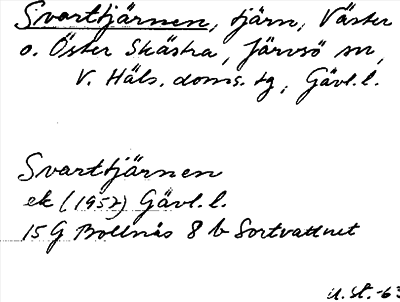 Svarttjärnen, tjärn, Väster
o. Öster Skästra, Järvsö sn,
V. Häls. doms. tg, Gävl.l.
Svarttjärnen
ek (1957) Gävl.l.
15G Bollnäs 8 b Sortvattnet
U.St.-63